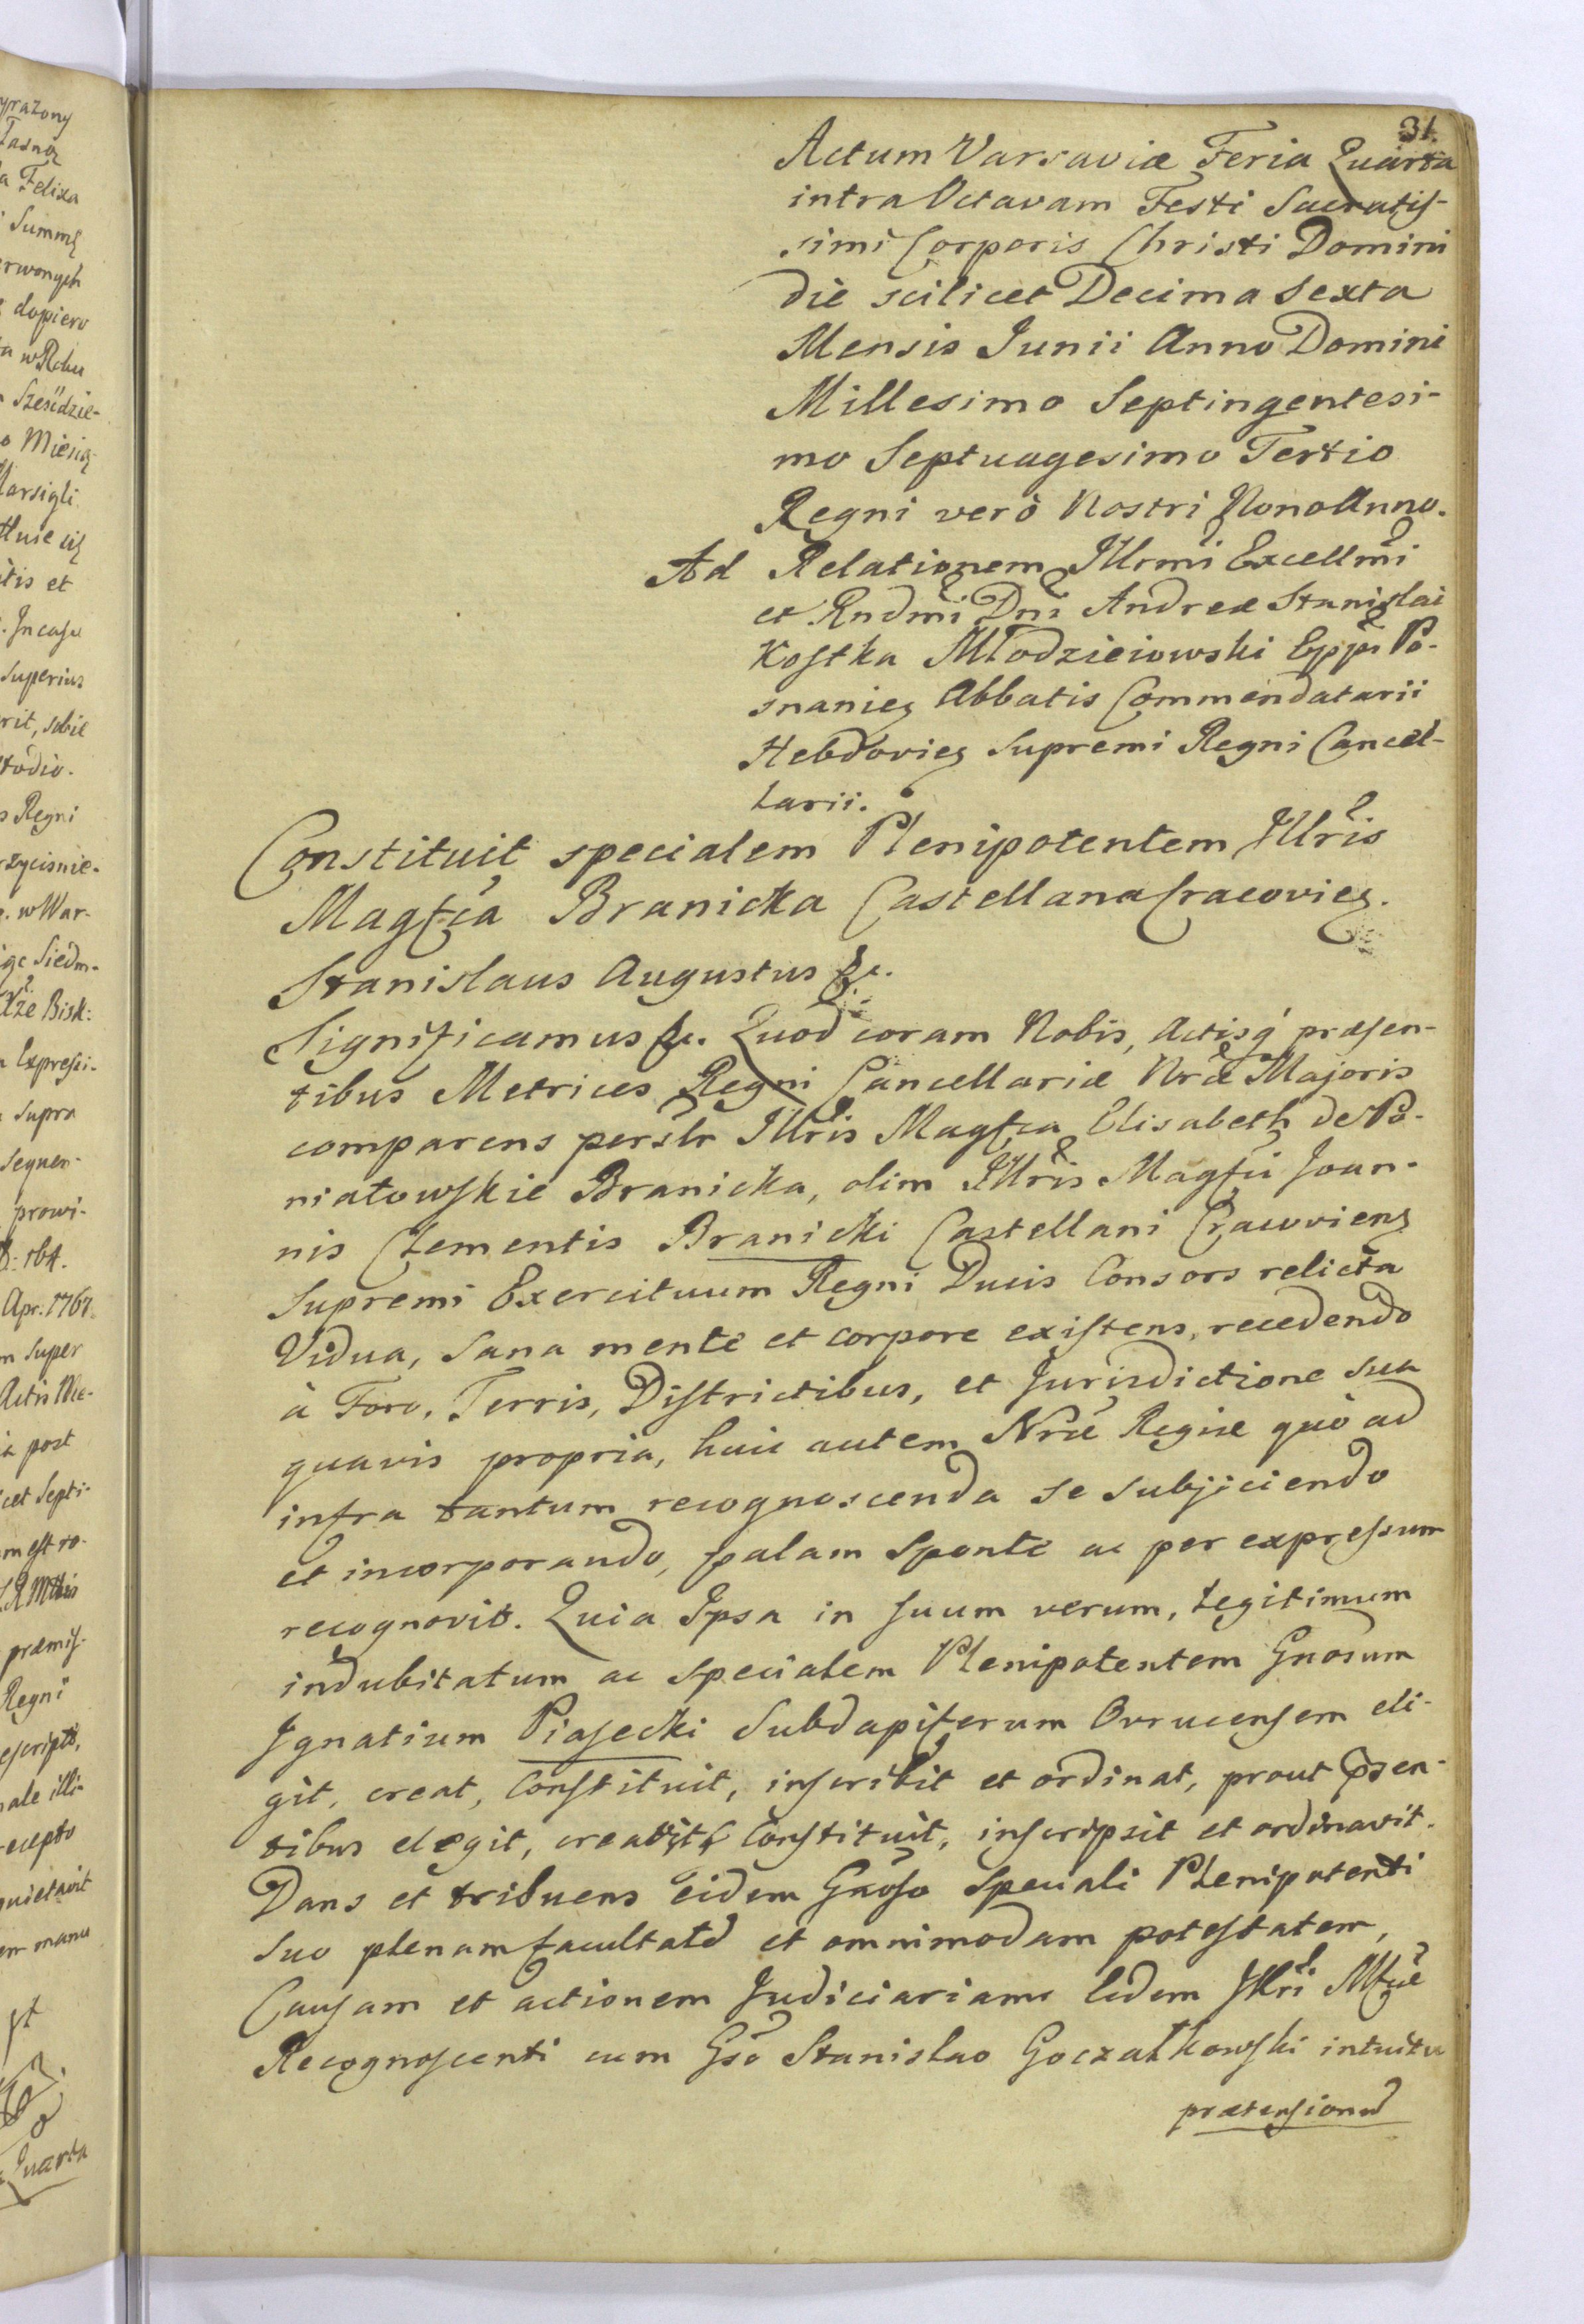 31.
Actum Varsaviæ Feria Quarta
intra Octavam Festi Sacratis-
simi Corporis Christi Domini
die scilicet Decima Sexta
Mensis Junii Anno Domini
Millesimo Septingentesi-
mo Septuagesimo Tertio
Regni verò Nostri Nono Anno.
Ad Relationem Illrmi Excellmi
et Rndmi Dni Andreæ Stanislai
Kostka Młodzieiowski Eppi Po-
snanien Abbatis Commendatarii
Hebdovien Supremi Regni Cancel-
larii.
Constituit specialem Plenipotentem Illris
Magfca Branicka Castellana Cracovien.
Stanislaus Augustus &c.
Significamus &c. Quod coram Nobis, Actisq præsen-
tibus Metrices Regni Cancellariæ Nræ Majoris
comparens persłr Illris Magfca Elisabeth de Po-
niatowskie Branicka, olim Illris Magfci Joan-
nis Clementis Branicki Castellani Cracovien
Supremi Exercituum Regni Ducis Consors relicta
Vidua, sana mente et corpore existens, recedendo
à Foro, Terris, Districtibus, et Jurisdictione sua
quavis propria, huic autem Nræ Regiæ quò ad
infra tantum recognoscenda se subjiciendo
et incorporando, palam sponte ac per expressum
recognovit. Quia Ipsa in suum verum, legitimum
indubitatum ac specialem Plenipotentem Gnosum
Ignatium Piasecki Subdapiferum Ovrucensem eli-
git, creat, constituit, inscribit et ordinat, prout psen-
tibus elegit, creavit, constituit, inscripsit et ordinavit.
Dans et tribuens eidem Gnoso speciali Plenipotenti
suo plenam facultatem et omnimodam potestatem,
Causam et actionem Judiciariam Eidem Illri Mfcæ
Recognoscenti cum Gso Stanislao Goczałkowski intuitu
prætensionum
yrazony
Tasną
a Felixa
Summę
erwonych
dopiero
a w Roku
Sześdzie-
o Miesią-
Marsigli
itis et
. In casu
superius
rit, sobie
todio.
s Regni
rzycisnie-
. w War-
Siedm-
Xże Bisk:
Expressi-
supra
sequen-
prowi-
Apr. 1767.
m super
Actis Me-
a post
cet Septi-
m est ro-
præmis-
Regni
escripto,
ale illi-
ecepto
quietavit
em manu
Quarta